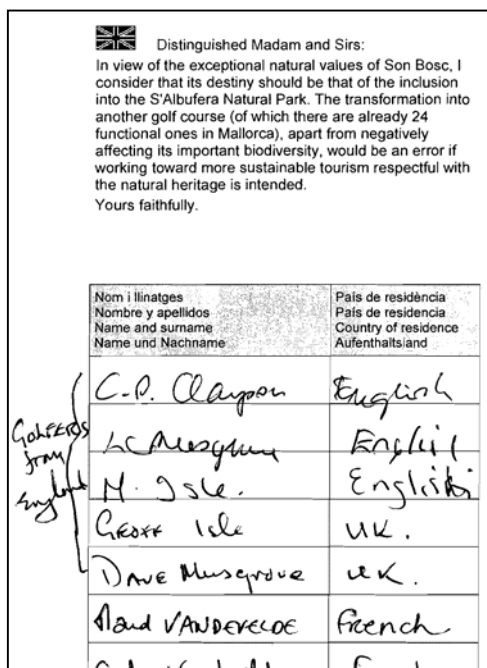 Distinguished Madam and Sirs:
In view of the exceptional natural values of Son Bosc, I
consider that its destiny should be that of the inclusion
into the S'Albufera Natural Park. The transformation into
another golf course (of which there are already 24
functional ones in Mallorca), apart from negatively
affecting its important biodiversity, would be an error if
working toward more sustainable tourism respectful with
the natural heritage is intended.
Yours faithfully.
Nom i llinatges País de residència
Nombre y apellidos País de residencia
Name and surname Country of residence
Name und Nachname Aufenthaltsland
Golfers
from
England
English
Musgrove
M. Isle. English
Geoff Isle UK.
Dave Musgrove UK.
VANDEVELDE French